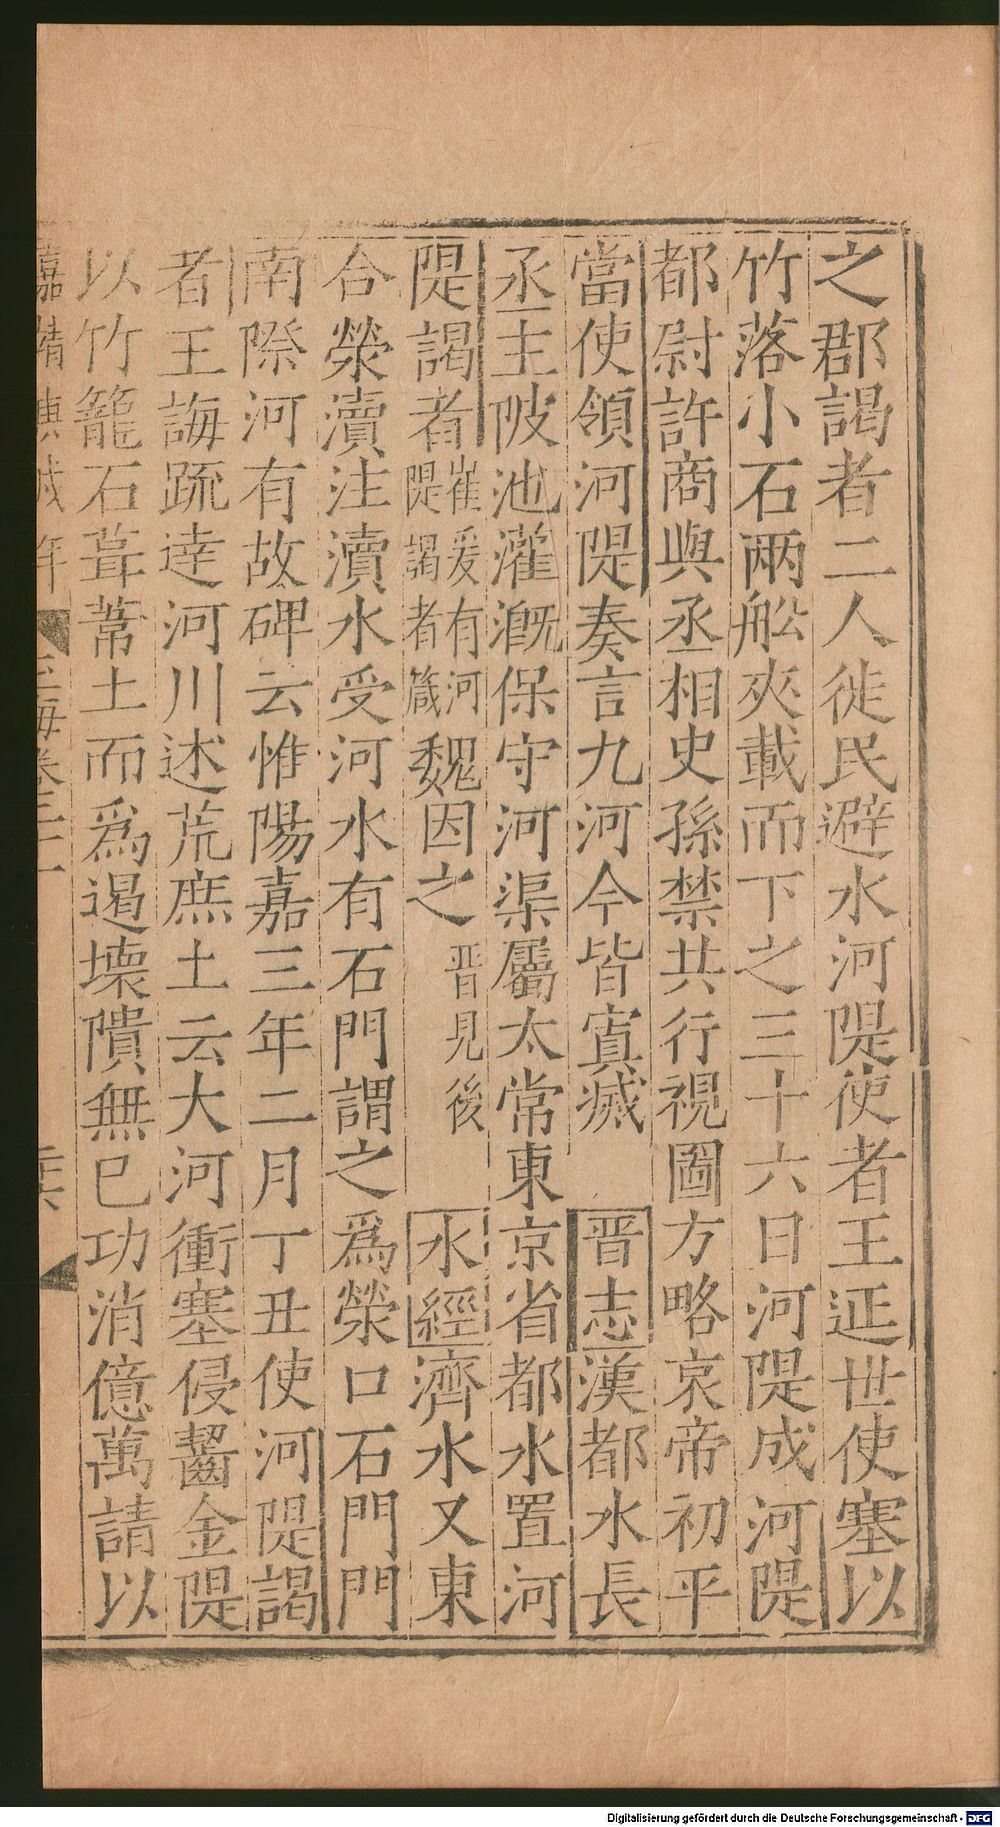 之郡謁者二人徙民避水河隄使者王延世使塞以
竹落小石兩船夾載而下之三十六日河隄成河隄
都尉許商與丞相史孫禁共行視圖方略哀帝初平
當使領河隄奏言九河今皆寘滅晋志漢都水長
丞主陂池灌漑保守河渠屬太常東京省都水置河
隄謁者崔爰有河隄謁者箴魏因之晋見後水經濟水又東
合滎瀆注瀆水受河水有石門謂之爲滎口石門門
南際河有故碑云惟陽嘉三年二月丁丑使河隄謁
者王誨疏逹河川述荒庶土云大河衝塞侵齧金隄
以竹籠石葺葦土而爲遏壊隤無已功消億萬請以
嘉靖 年
玉海卷二十一
Digitalisierung gefördert durch die Deutsche Forschungsgemeinschaft - DFG